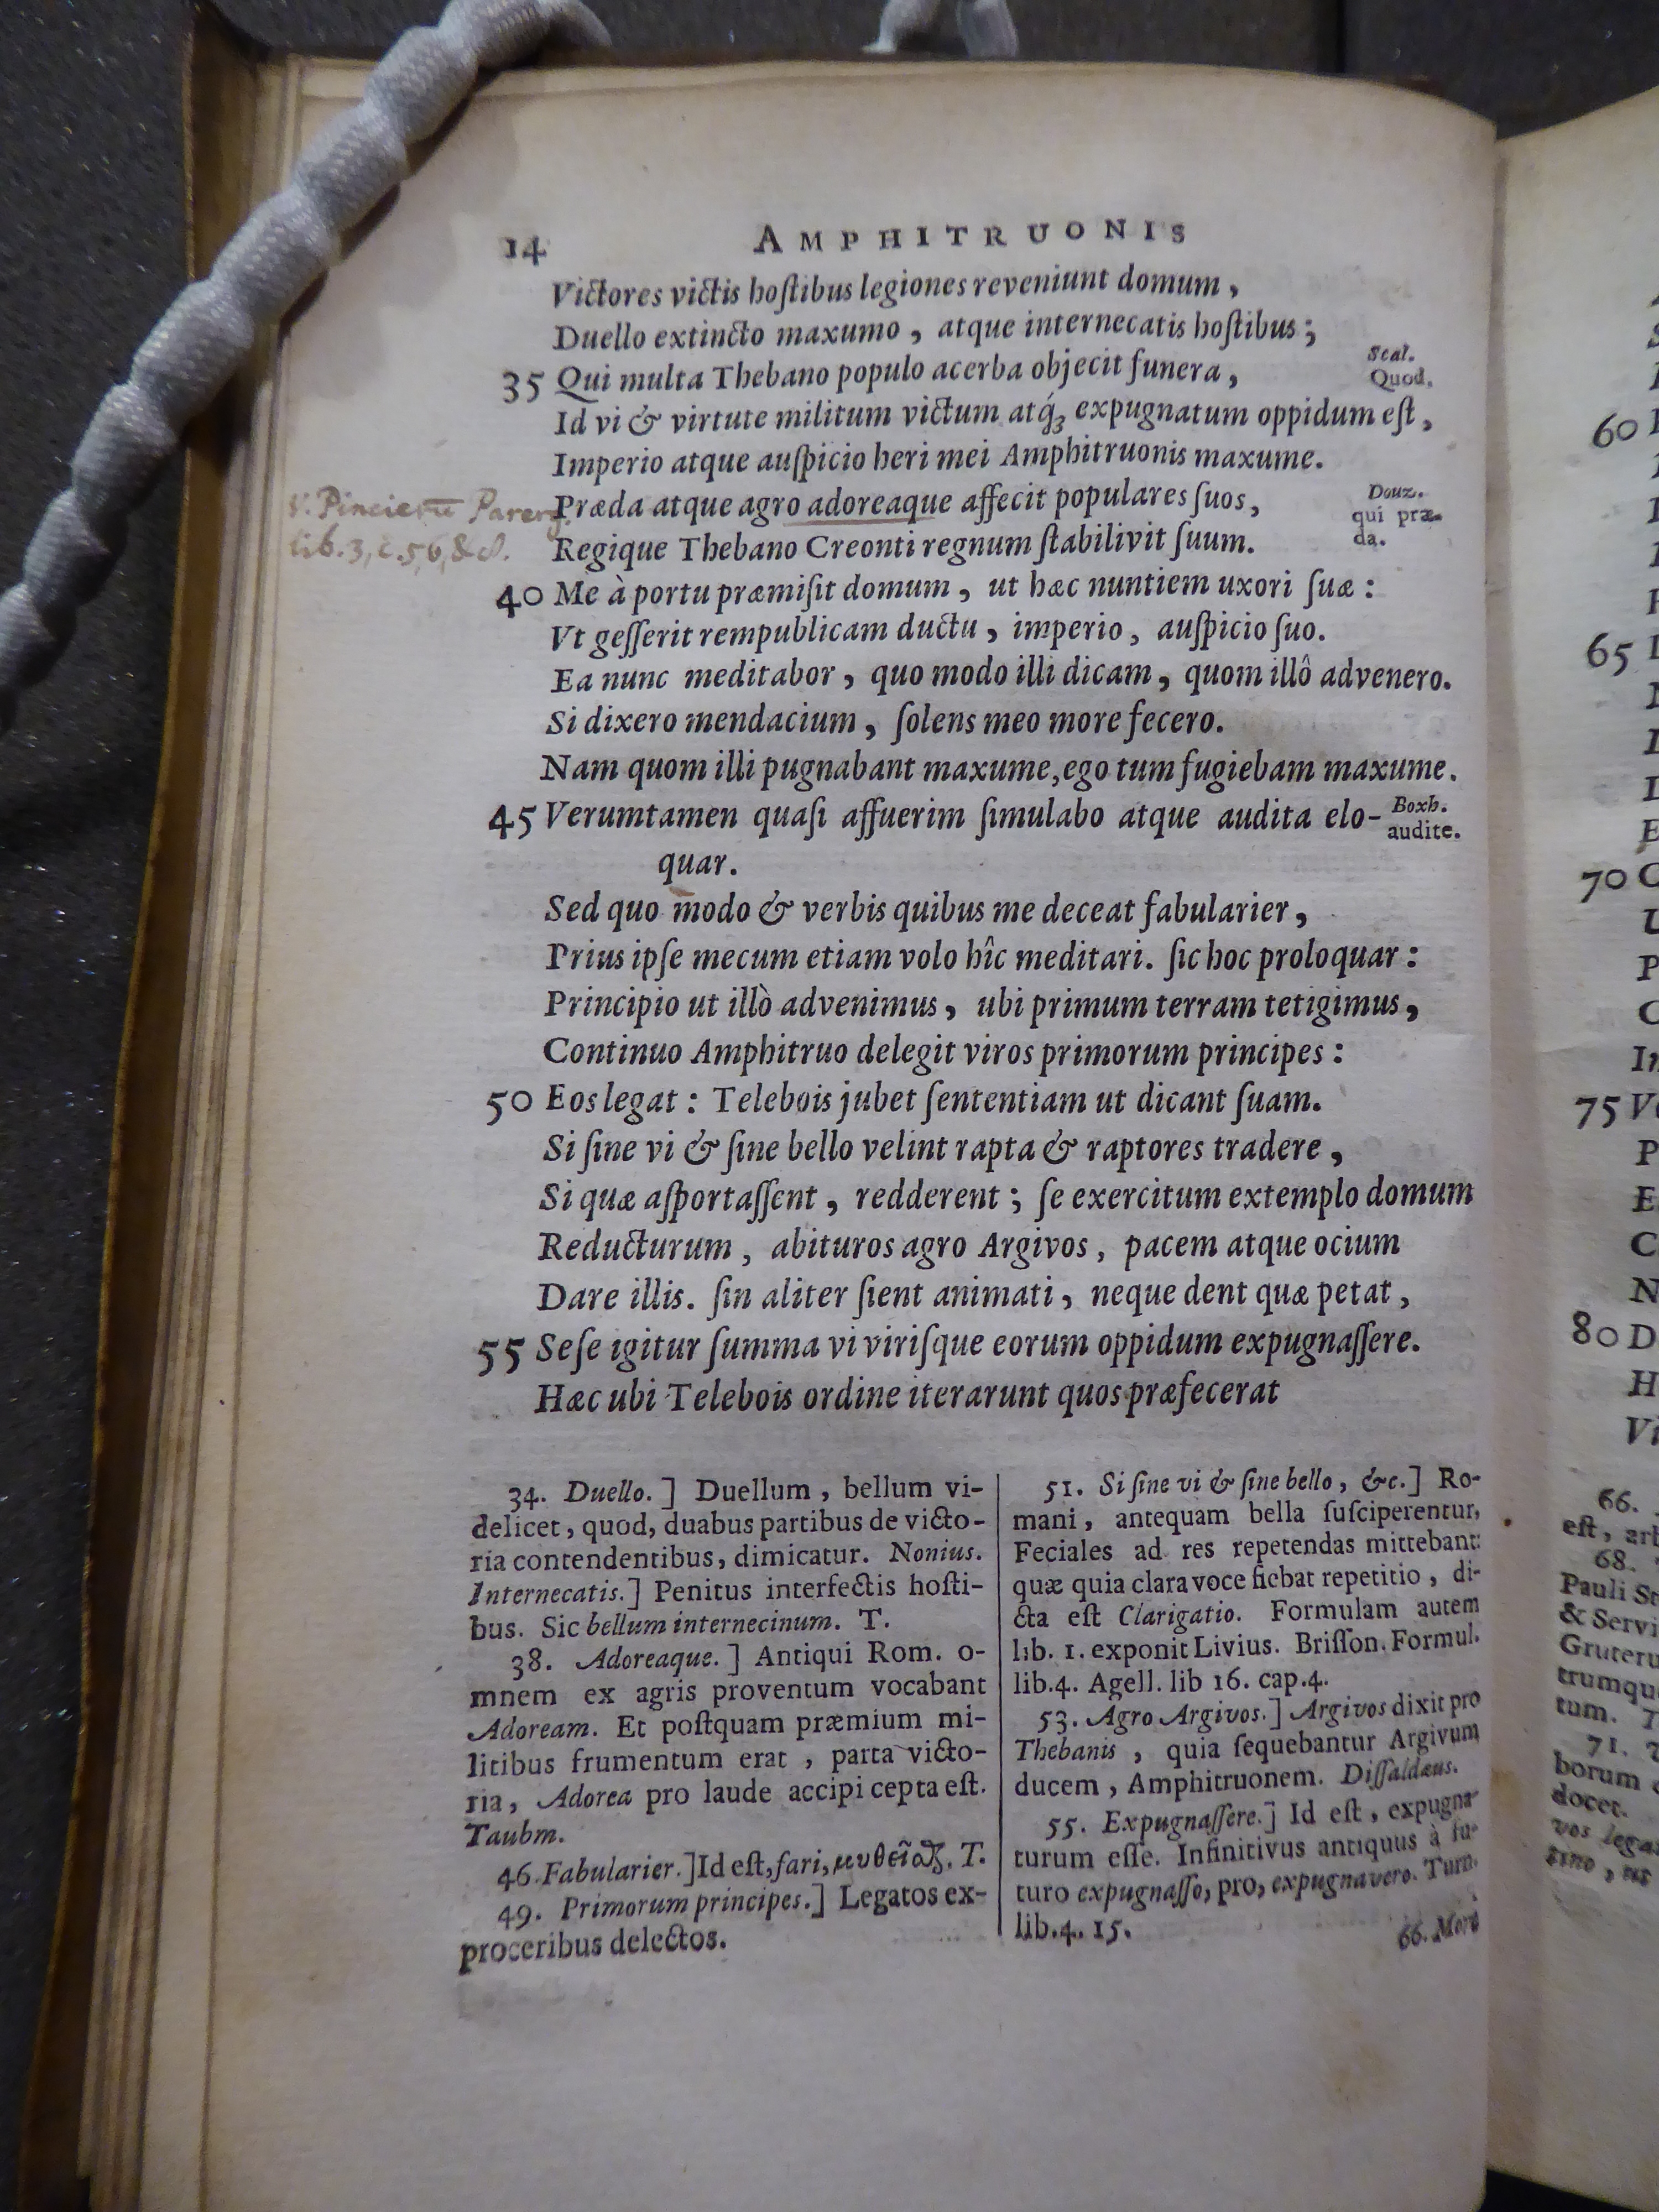 14 AMPHITRUONIS
Victores victis hoſtibus legiones reveniunt domum,
Duello extincto maxumo, atque internecatis hoſtibus;
35 Qui multa Thebano populo acerba objecit funera,
Scal.
Quod.
Id vi & virtute militum victum atq́; expugnatum oppidum eſt,
Imperio atque auſpicio heri mei Amphitruonis maxume.
v. Pincienū Parerg.
lib. 3, c. 56, & .
Præda atque agro adoreaque affecit populares ſuos,
Douz.
qui præ-
da.
Regique Thebano Creonti regnum ſtabilivit ſuum.
40 Me à portu præmiſit domum, ut hæc nuntiem uxori ſuæ:
Vt geſſerit rempublicam ductu, imperio, auſpicio ſuo.
Ea nunc meditabor, quo modo illi dicam, quom illô advenero.
Si dixero mendacium, ſolens meo more fecero.
Nam quom illi pugnabant maxume, ego tum fugiebam maxume.
45 Verumtamen quaſi affuerim ſimulabo atque audita elo-
quar.
Boxh.
audite.
Sed quo modo & verbis quibus me deceat fabularier,
Prius ipſe mecum etiam volo hîc meditari. ſic hoc proloquar:
Principio ut illò advenimus, ubi primum terram tetigimus,
Continuo Amphitruo delegit viros primorum principes:
50 Eos legat: Telebois jubet ſententiam ut dicant ſuam.
Si ſine vi & ſine bello velint rapta & raptores tradere,
Si quæ aſportaſſent, redderent; ſe exercitum extemplo domum
Reducturum, abituros agro Argivos, pacem atque ocium
Dare illis. ſin aliter ſient animati, neque dent quæ petat,
55 Seſe igitur ſumma vi viriſque eorum oppidum expugnaſſere.
Hæc ubi Telebois ordine iterarunt quos præfecerat
34. Duello.] Duellum, bellum vi-
delicet, quod, duabus partibus de victo-
ria contendentibus, dimicatur. Nonius.
Internecatis.] Penitus interfectis hoſti-
bus. Sic bellum internecinum. T.
38. Adoreaque.] Antiqui Rom. o-
mnem ex agris proventum vocabant
Adoream. Et poſtquam præmium mi-
litibus frumentum erat, parta victo-
ria, Adorea pro laude accipi cepta eſt.
Taubm.
46. Fabularier.] Id eſt, fari, μυθεῖσθαι. T.
49. Primorum principes.] Legatos ex-
proceribus delectos.
51. Si ſine vi & ſine bello, &c.] Ro-
mani, antequam bella ſuſciperentur,
Feciales ad res repetendas mittebant:
quæ quia clara voce fiebat repetitio, di-
cta eſt Clarigatio. Formulam autem
lib. 1. exponit Livius. Briſſon. Formul.
lib. 4. Agell. lib 16. cap. 4.
53. Agro Argivos.] Argivos dixit pro
Thebanis, quia ſequebantur Argivum
ducem, Amphitruonem. Diſſaldæus.
55. Expugnaſſere.] Id eſt, expugna-
turum eſſe. Infinitivus antiquus à fu-
turo expugnaſſo, pro, expugnavero. Turn.
lib. 4. 15.
66. More
60
65
70
75
80
66.
eſt, 
68.
Pauli
& Servi
trumqu
tum.
71.
borum
docet.
vos lega